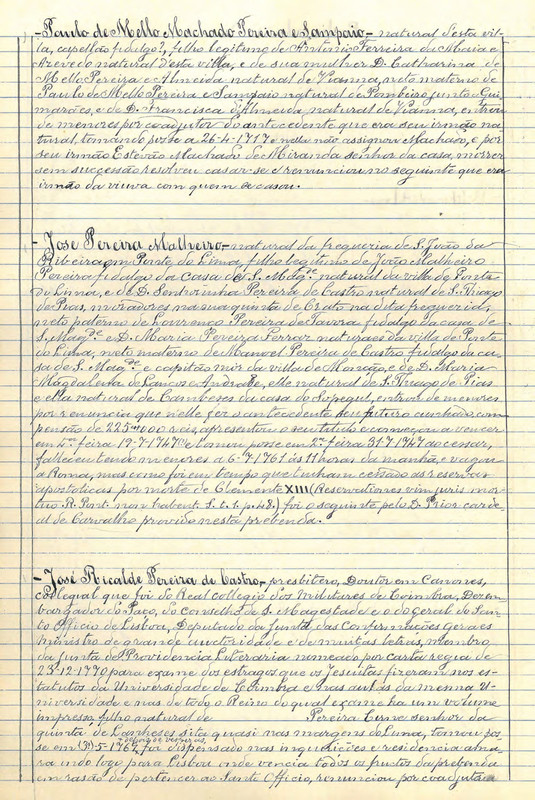 - Paulo de Mello Machado Pereira e Sampaio - natural desta vil-
la, capellão fidalgo?, filho legitimo de Antonio Ferreira da Maia e
Azevedo natural d'esta villa, e de sua mulher D. Catharina de
Mello Pereira e Almeida natural de Vianna, neto materno de
Paulo de Mello Pereira e Sampaio natural de Pombeiro junto a Gui-
marães, e de D. Francisca d'Almeida natural de Vianna, entrou
de menores por coadjutor do antecedente que era seu irmão na
tural, tomando posse a 26-4-1717 e nella não assignou Machado, e por
seu irmão Estevão Machado de Miranda senhor da casa, morrer
sem successão resolveu casar-se e renunciou no seguinte que era
irmão da viuva com quem se casou.
- José Pereira Malheiro - natural da freguezia de S. João da
Ribeira em Ponte do Lima, filho legitimo de João Malheiro
Pereira fidalgo da casa de S. Mag.de natural da villa de Ponte
do Lima, e de D. Senhorinha Pereira de Castro natural de S. Thiago
de Pias, moradores na sua quinta de Crato na dita freguezia,
neto paterno de Lourenço Pereira de Tavora fidalgo da casa de
S. Mag.de e D. Maria Pereira Ferraz naturaes da villa de Ponte
do Lima, neto materno de Manoel Pereira de Castro fidalgo da ca-
sa de S. Mag.de e capitão mór da villa de Monção, e de D. Maria
Magdalena de Lanços e Andrade, elle natural de S. Thiago de Pias
e ella natural de Cambezes da casa do Lopegul, entrou de menores
por renuncia que n'elle fez o antecedente seu futuro cunhado, com
pensão de 225:000 reis, apresentou o seu titulo e começou a vencer
em 4ª feira 19-7-1747 e tomou posse em 2ª feira 31-7-1747 ao cessar,
falleceu tendo menores a 6-7-1761 ás 11 horas da manhã, e vagou
a Roma, mas como foi em tempo que tinham cessado as reservas
apostolicas por morte de Clemente XIII (Reservationes vim juris mor-
tuo R. Pont. non habent S. C. 1. p. 48.) foi o seguinte pelo D. Prior carde-
al de Carvalho provido nesta prebenda.
- José Ricalde Pereira de Castro, - presbitero, Doutor em Canones,
collegial que foi do Real collegio dos Militares de Coimbra, Dezem
bargador do Paço, do conselho de S. Magestade e o do geral do San-
to Officio de Lisboa, Deputado da junta das Confirmações Geraes
ministro de grande auctoridade e de muitas letras, membro
da junta de Providencia Literaria nomeado por carta regia de
23-12-1770 para exame dos estragos que os Jesuitas fizeram nos es-
tatutos da Universidade de Coimbra e nas aulas da mesma U-
niversidade e nas de todo o Reino do qual exame ha um volume
impresso, filho natural de Pereira Cunha senhor da
quinta de Lanheses sita quasi nas margens do Lima, tomou pos-
se em -5-176 , foi dispensado nas inquirições e residencia
indo logo para Lisboa onde vencia todos os fructos da prebenda
em rasão de pertencer ao Santo Officio, renunciou por coadjutor a